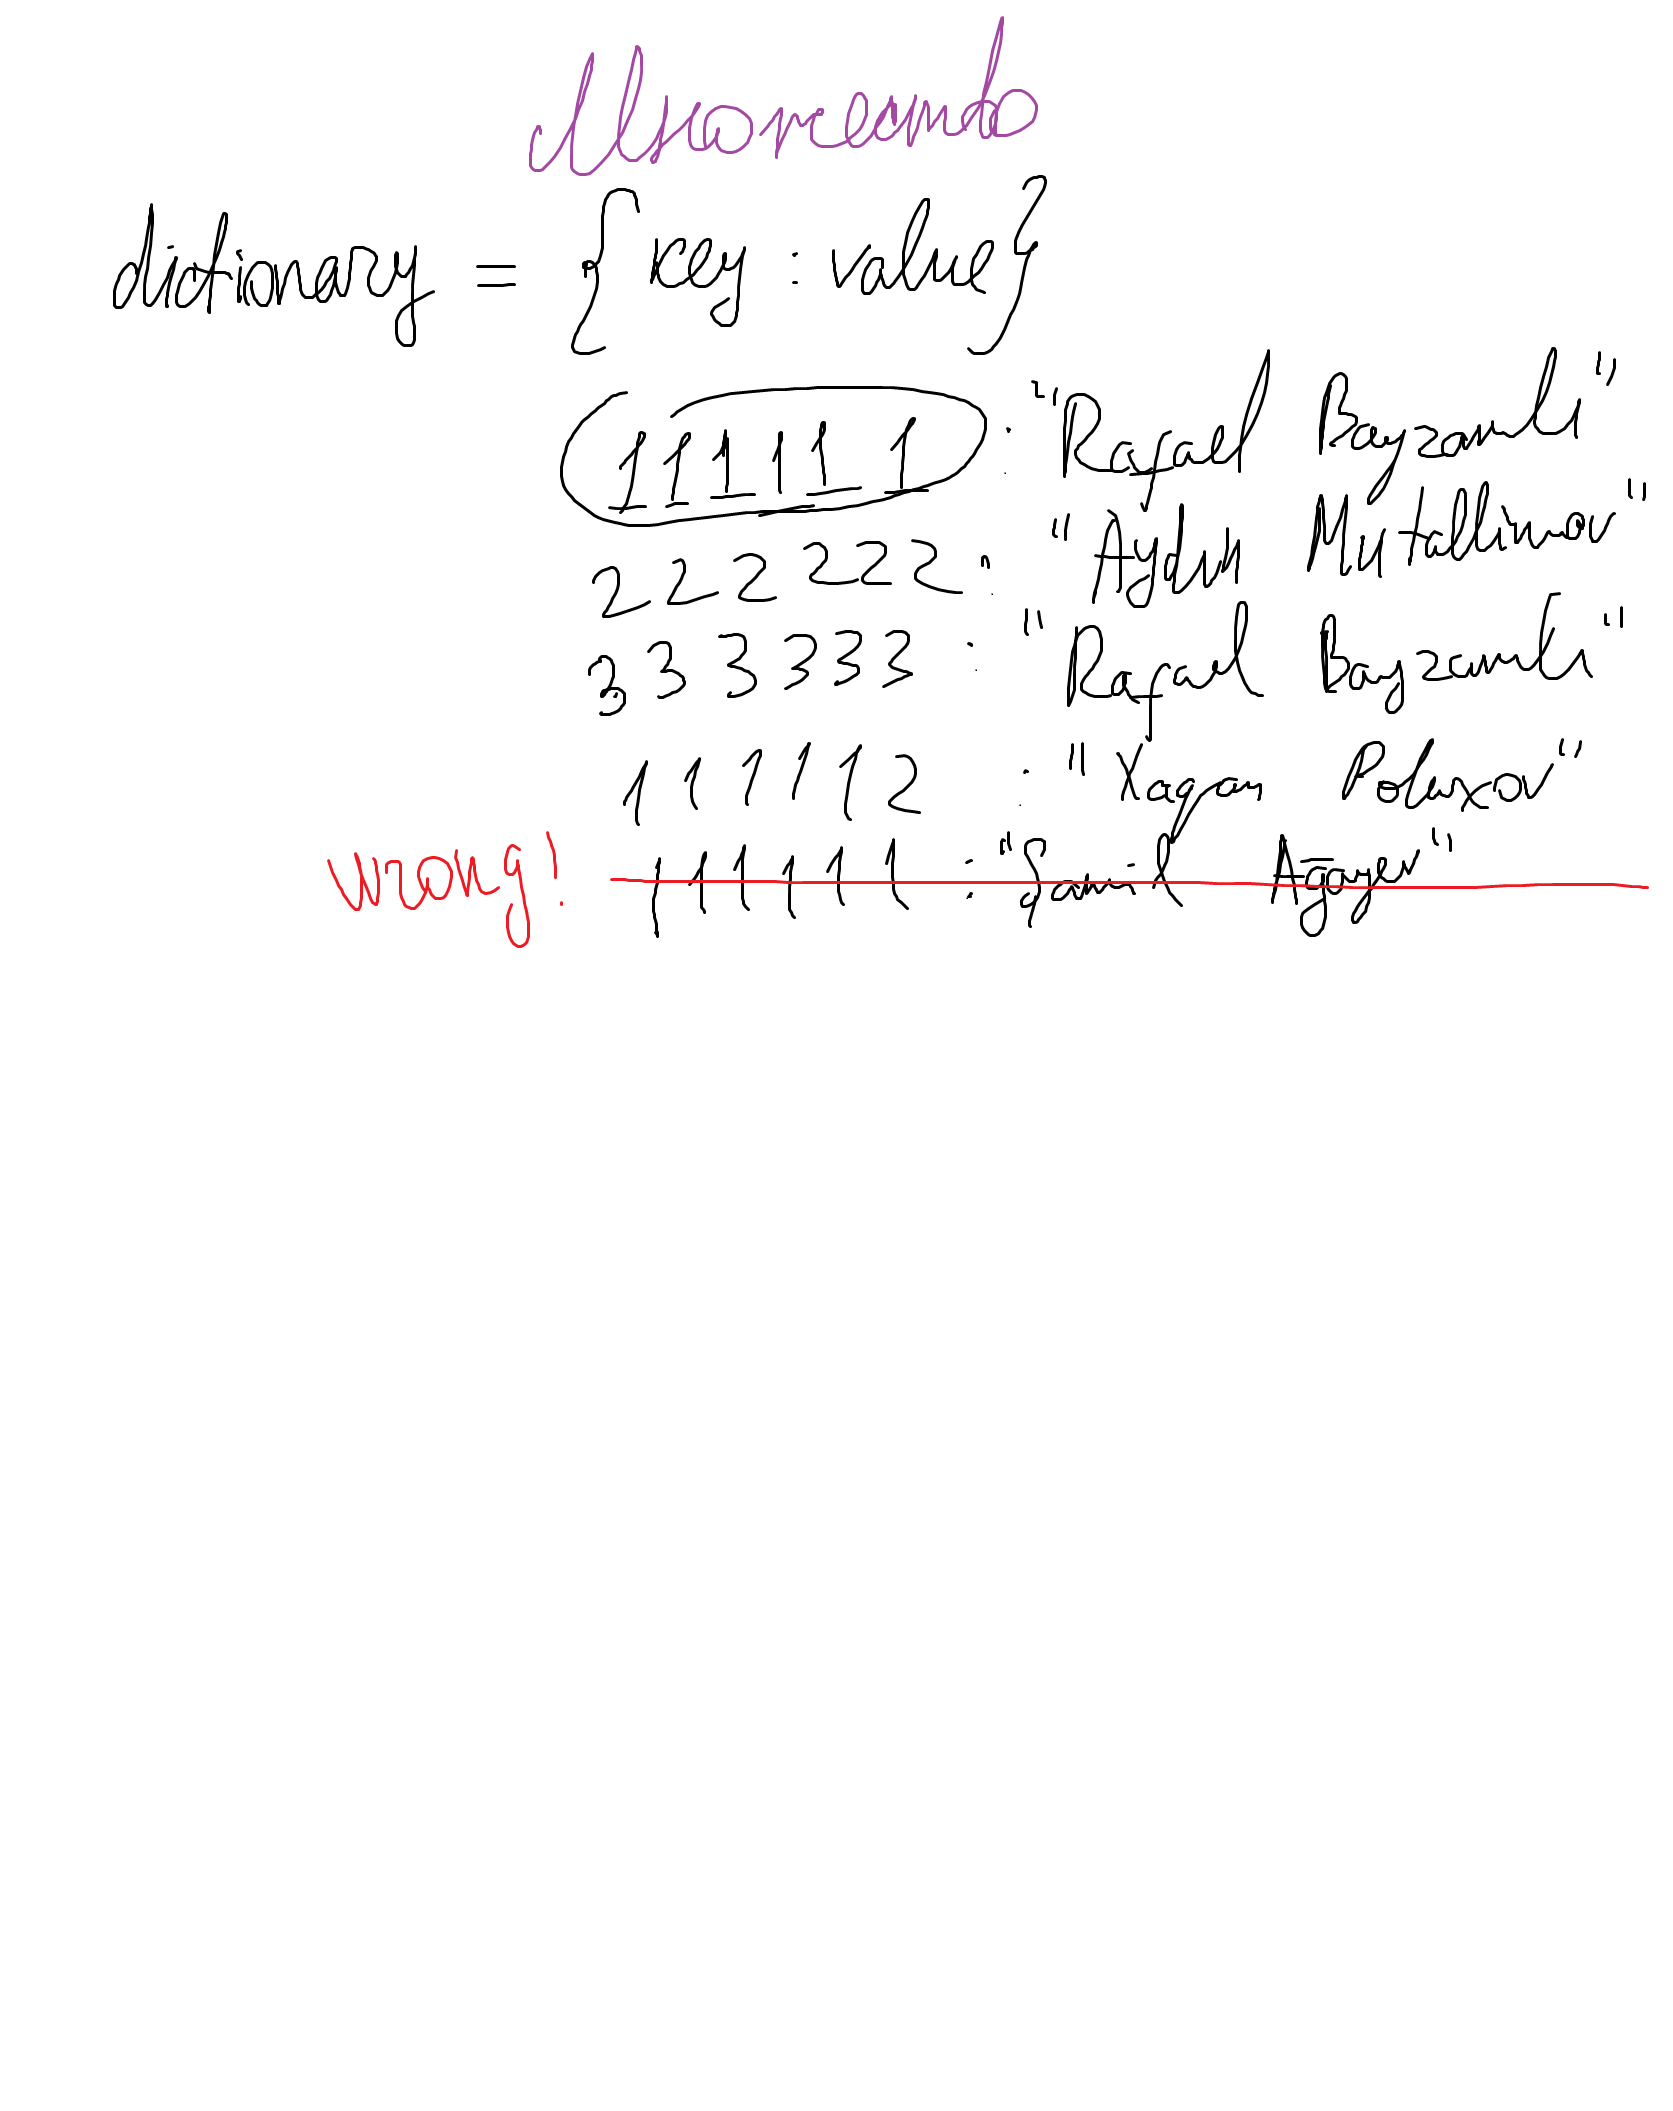 Множество
dictionary = {key : value}
111111 : "Rafael Bayramlı"
222222 : "Aydın Mutallimov"
333333 : "Rafael Bayramlı"
111112 : "Xaqan Poluxov"
wrong! 111111 : "Şamil Ağayev"